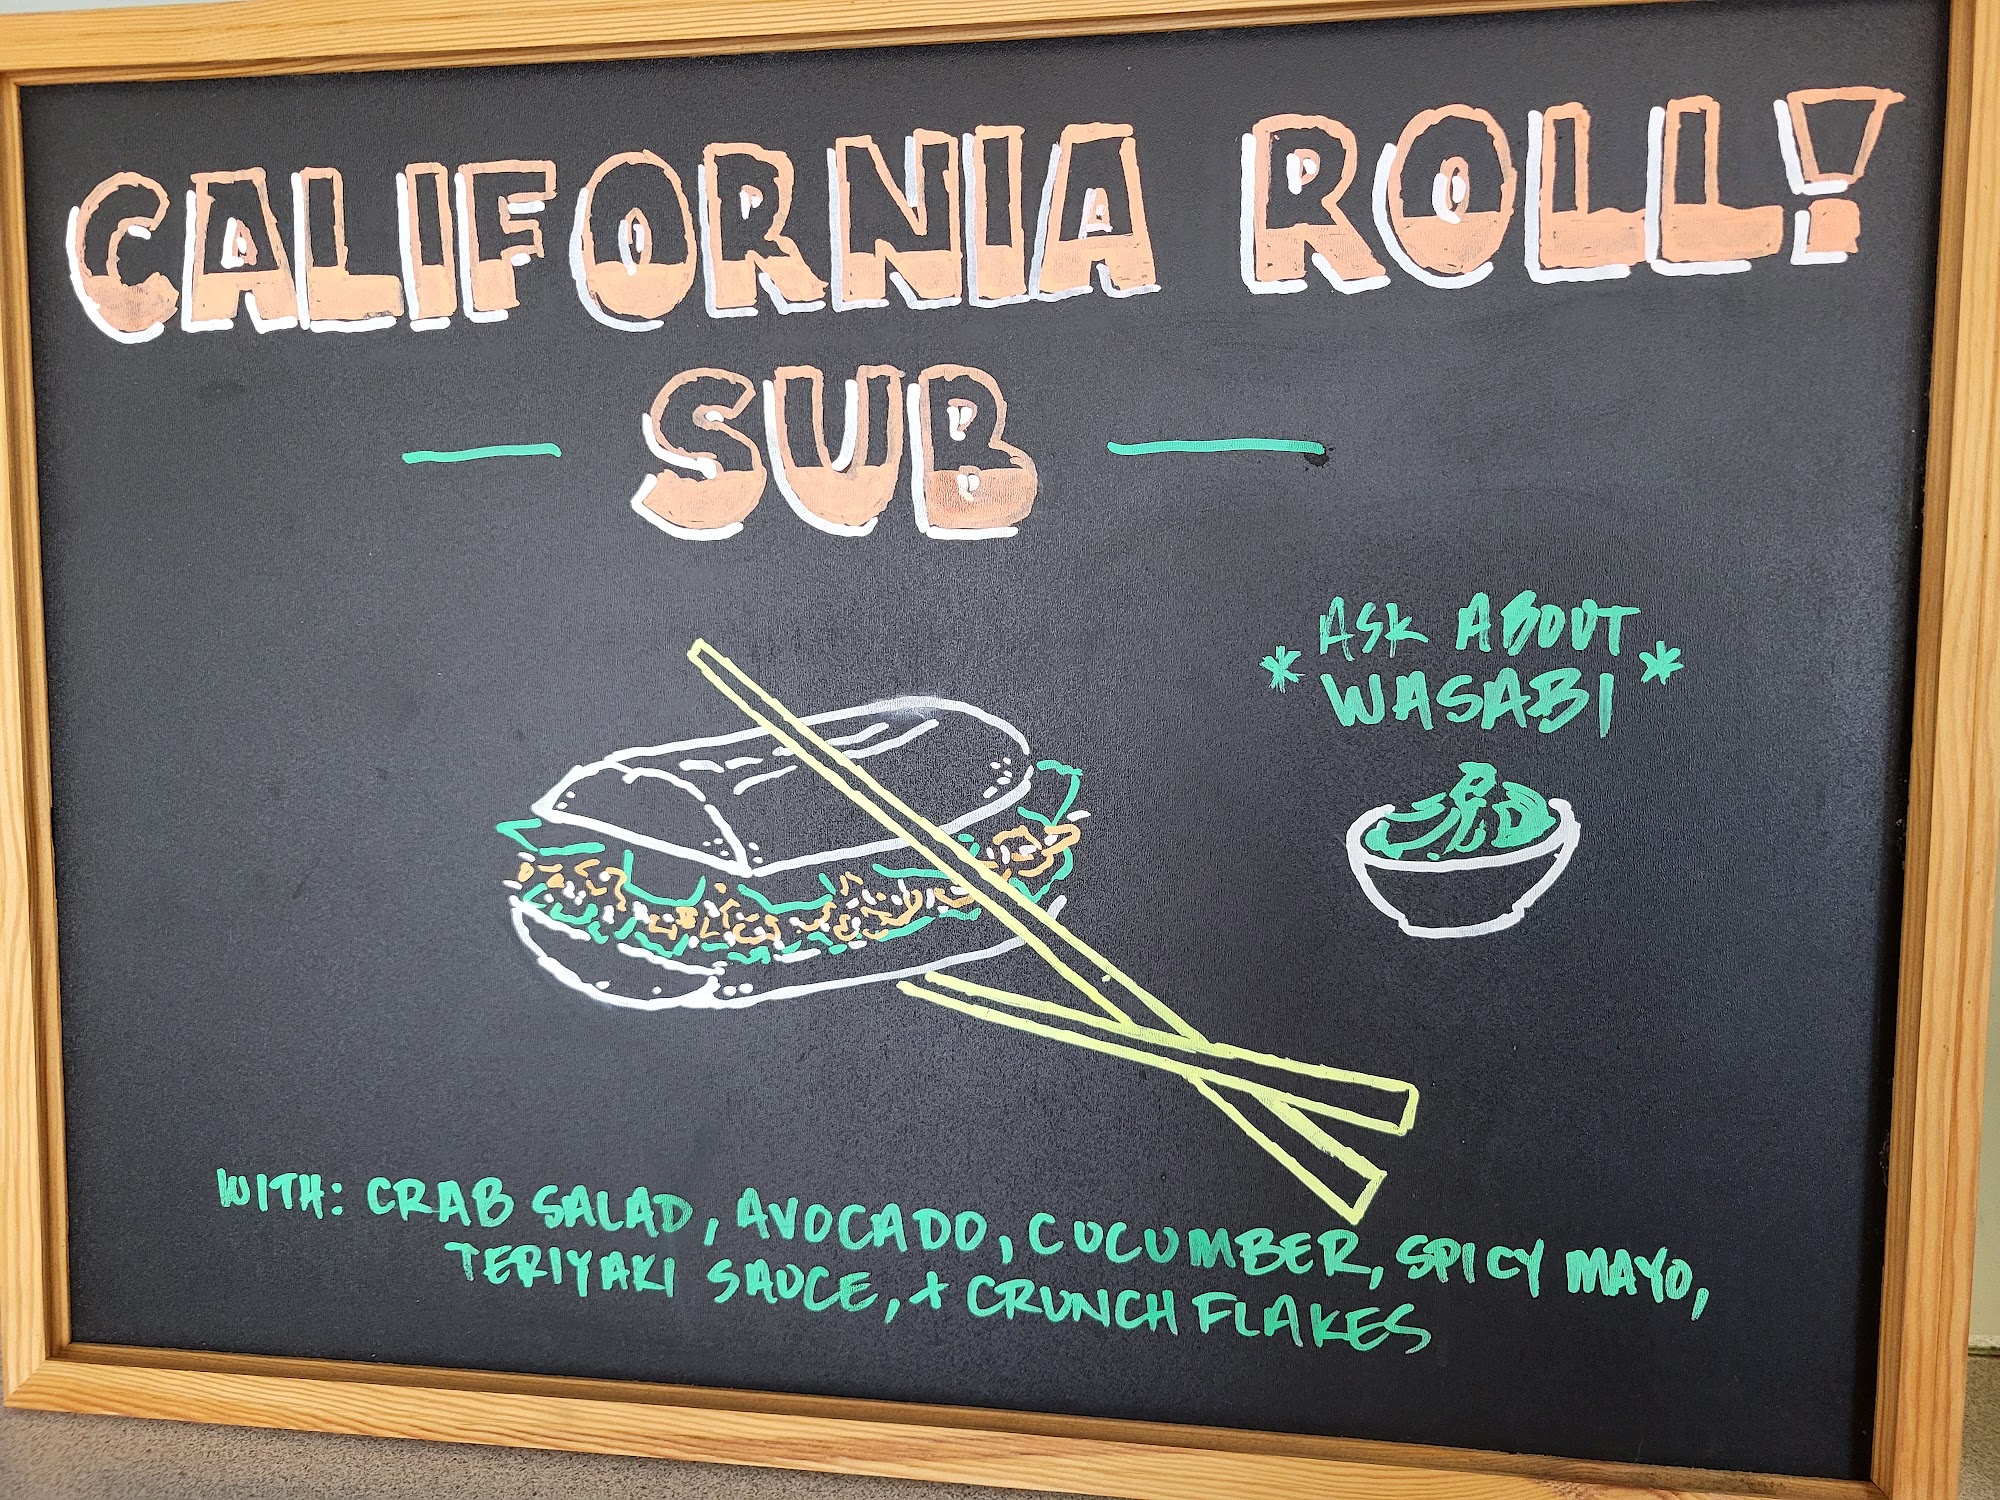 CALIFORNIA ROLL!
SUB
* ASK ABOUT *
WASABI
WITH: CRAB SALAD, AVOCADO, CUCUMBER, SPICY MAYO,
TERIYAKI SAUCE, + CRUNCH FLAKES